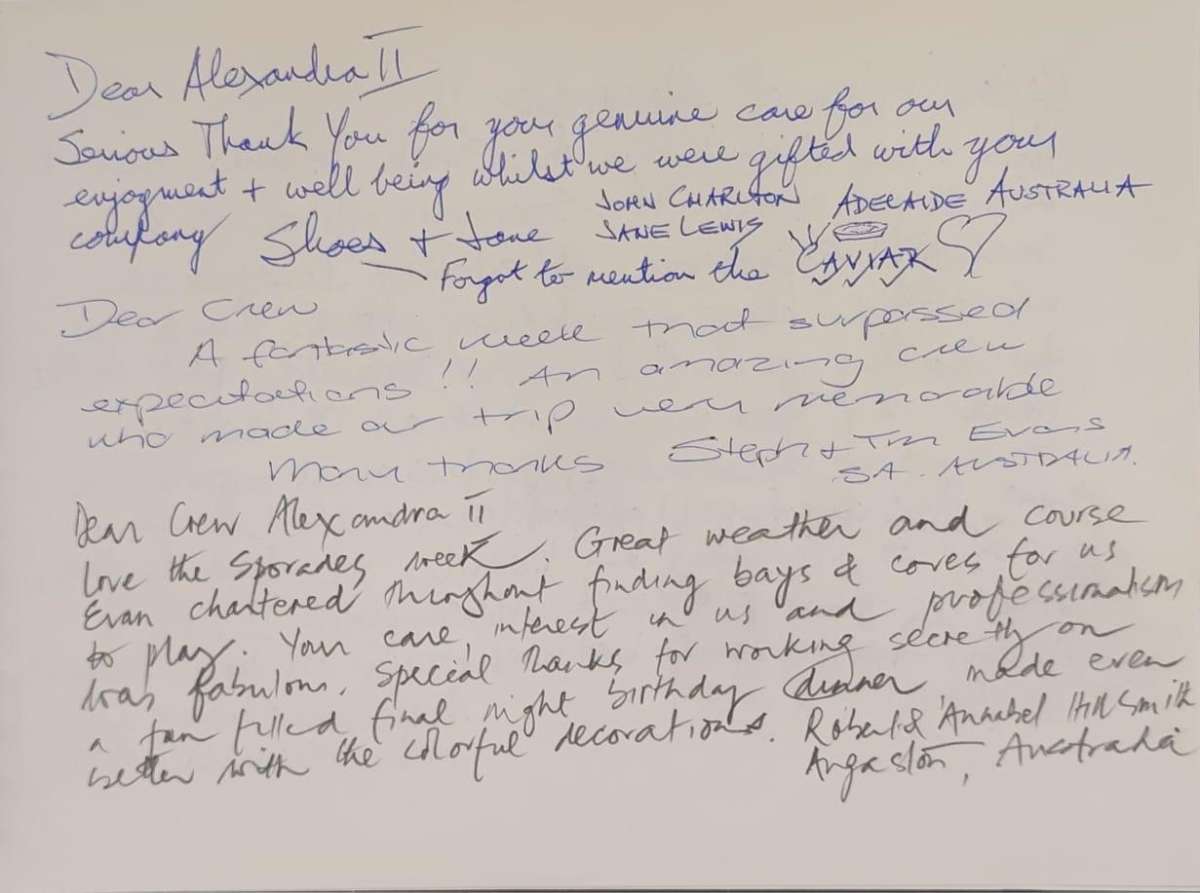 Dear Alexandra II
Serious Thank You for your genuine care for our
enjoyment + well being whilst we were gifted with your
company Shoes + Jane
JOHN CHARLTON ADELAIDE AUSTRALIA
JANE LEWIS
Forgot to mention the CAVIAR
Dear Crew
A fantastic week that surpassed
expectations !! An amazing crew
who made our trip very memorable
Many thanks Steph + Tim Evans
SA. AUSTRALIA.
Dear Crew Alexandra II
love the Sporades week. Great weather and course
Evan chartered throughout finding bays & coves for us
to play. Your care, interest in us and professionalism
was fabulous. Special thanks for working secretly on
a fun filled final night birthday dinner made even
better with the colorful decorations. Robert & Annabel Hill Smith
Angaston, Australia